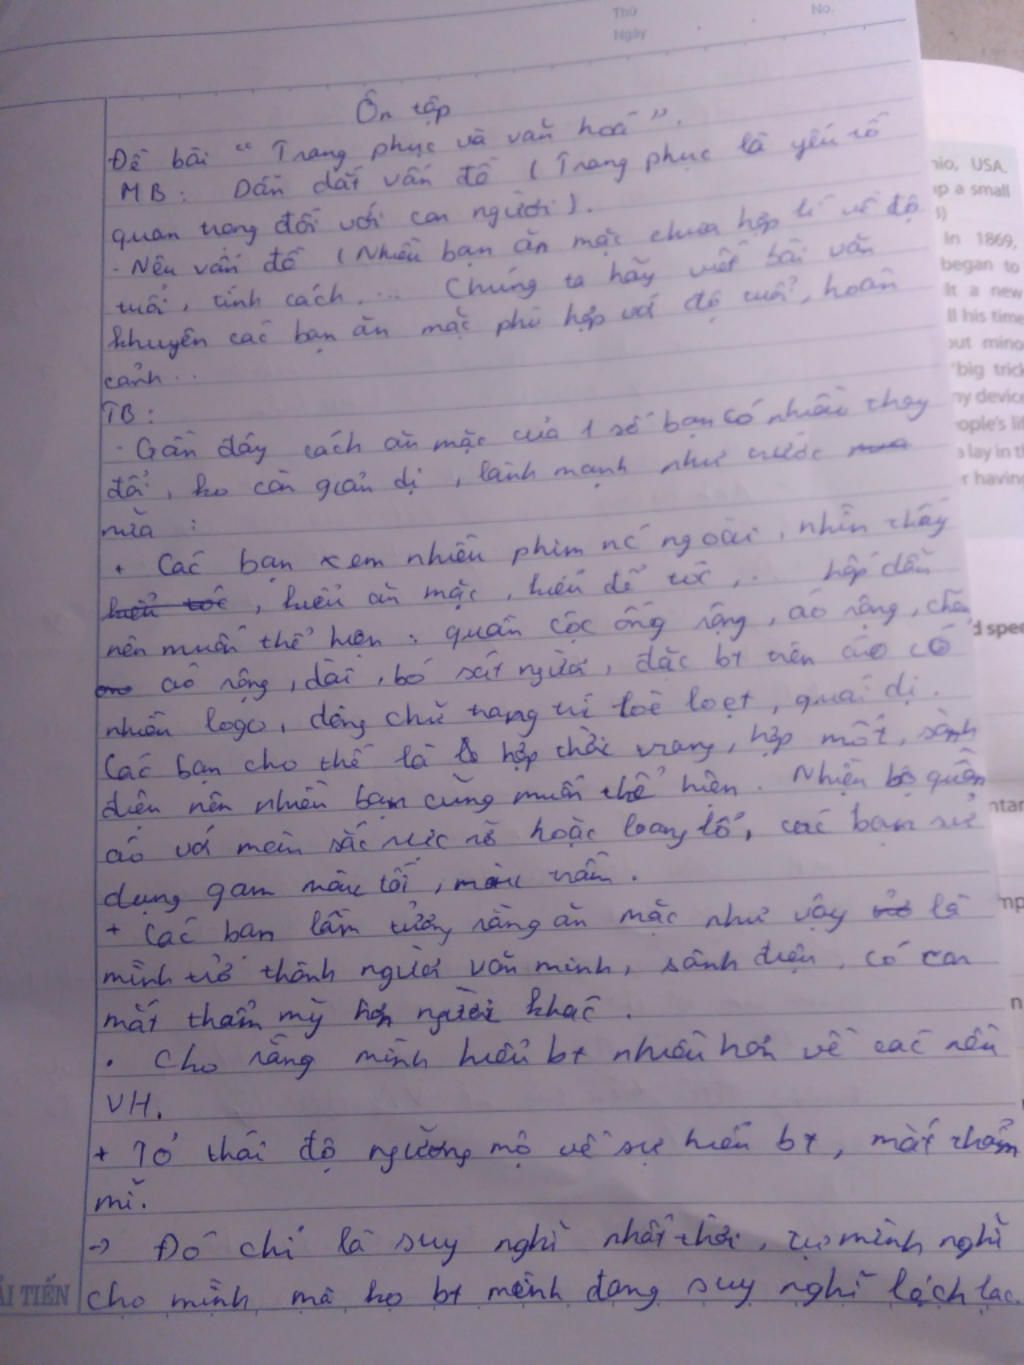 Thứ
No.
Ngày
Ôn tập
Đề bài " Trang phục và văn hoá ".
MB : Dẫn dắt vấn đề ( Trang phục là yếu tố
quan trọng đối với con người ).
- Nêu vấn đề ( Nhiều bạn ăn mặc chưa hợp lí về độ
tuổi, tính cách,... Chúng ta hãy viết bài văn
khuyên các bạn ăn mặc phù hợp với độ tuổi, hoàn
cảnh...
TB :
- Gần đây cách ăn mặc của 1 số bạn có nhiều thay
đổi, ko còn giản dị, lành mạnh như trước
nữa :
+ Các bạn xem nhiều phim nc ngoài, nhìn thấy
, kiểu ăn mặc, kiểu để tóc,... hấp dẫn
nên muốn thể hiện : quần cộc ống rộng, áo rộng,
áo rộng, dài, bó sát người, đặc bt trên áo có
nhiều logo, dòng chữ trang trí loè loẹt, quái dị.
Các bạn cho thế là hợp thời trang, hợp mốt, sành
điệu nên nhiều bạn cũng muốn thể hiện. Nhiều bộ quần
áo với màu sắc rực rỡ hoặc loang lổ, các bạn sử
dụng gam màu tối, màu trầm.
+ Các bạn lầm tưởng rằng ăn mặc như vậy là
mình trở thành người văn minh, sành điệu, có con
mắt thẩm mỹ hơn người khác.
. Cho rằng mình hiểu bt nhiều hơn về các nền
VH.
+ Tỏ thái độ ngưỡng mộ về sự hiểu bt, mắt thẩm
mĩ.
-> Đó chỉ là suy nghĩ nhất thời, tự mình nghĩ
cho mình mà ko bt mình đang suy nghĩ lệch lạc.
ẢI TIẾN
nio, USA.
up a small
In 1869,
began to
lt a new
ll his time
out mino
"big trick
ny device
eople's lif
a lay in th
r having
d spee
ntar
mp
n